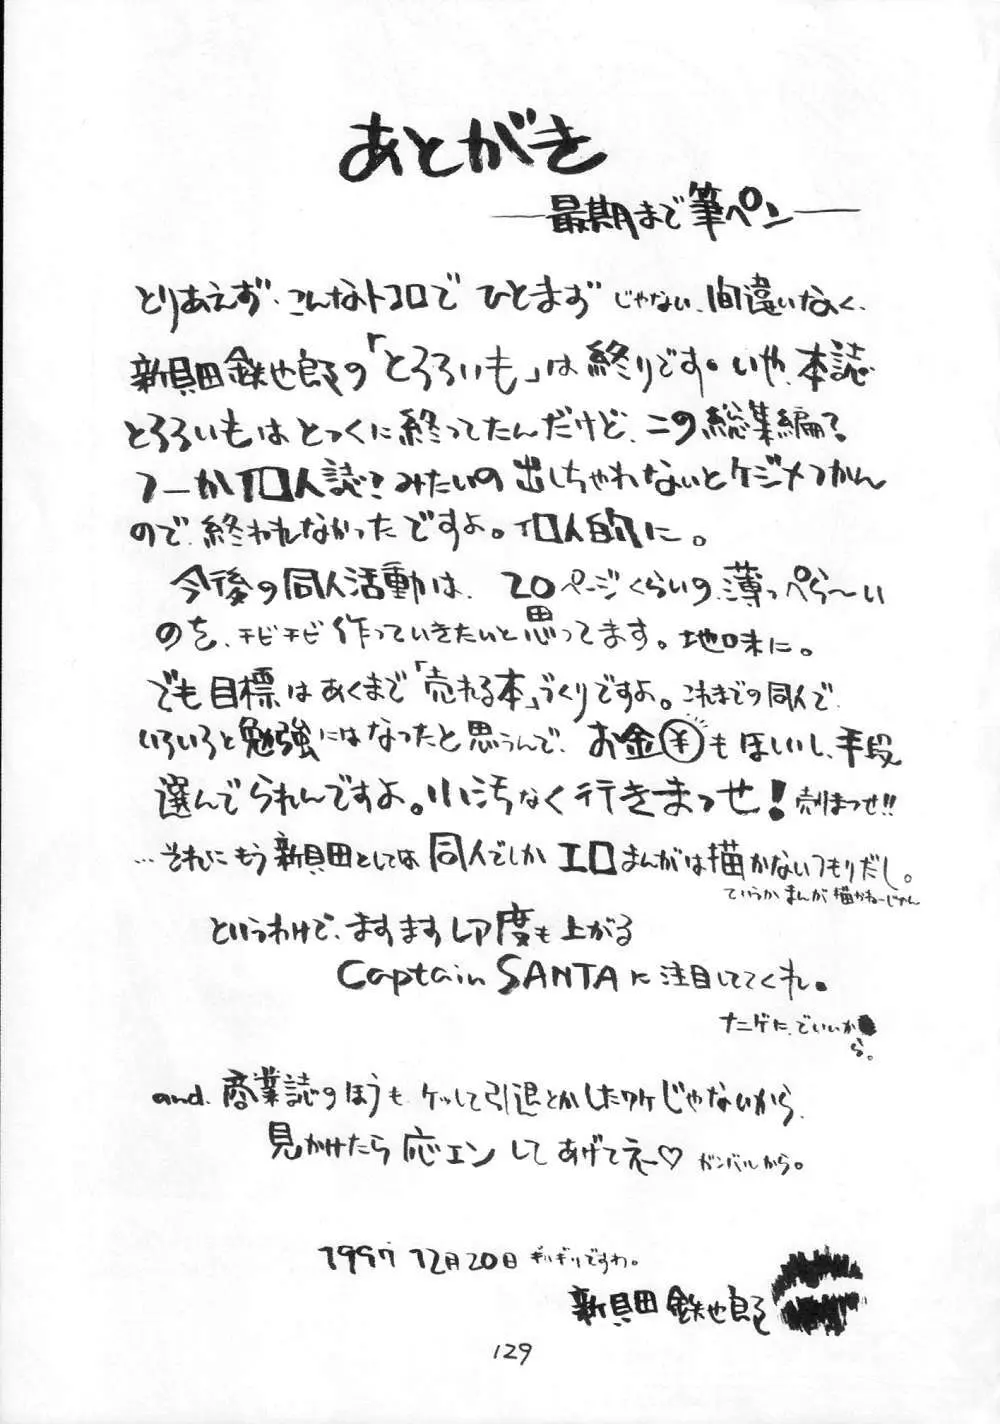 あとがき
──最期まで筆ペン──
とりあえず、こんなトコロで ひとまず じゃない、間違いなく、
新貝田鉄也郎の「とろろいも」は終りです。いや、本誌
とろろいもはとっくに終ってたんだけど、この総集編?
つーか個人誌?みたいの出しちゃわないとケジメつかん
ので、終われなかったですよ。個人的に。
今後の同人活動は、20ページくらいの、薄っぺら〜い
のを、チビチビ作っていきたいと思ってます。地味に。
でも目標はあくまで「売れる本」づくりですよ。これまでの同人で、
いろいろと勉強にはなったと思うんで、お金¥もほしいし、手段
選んでられんですよ。小汚なく行きまっせ!売りまっせ!!
…それにもう新貝田としては同人でしかエロまんがは描かないつもりだし。
ていうかまんが描かねーじゃん
というわけで、ますますレア度も上がる
Captain SANTAに注目しててくれ。
ナニゲに、でいいか
ら。
and、商業誌のほうも、ケッして引退とかしたワケじゃないから、
見かけたら応エンしてあげてえー♡ ガンバルから。
1997 12月20日 ギリギリですわ。
新貝田鉄也郎
129